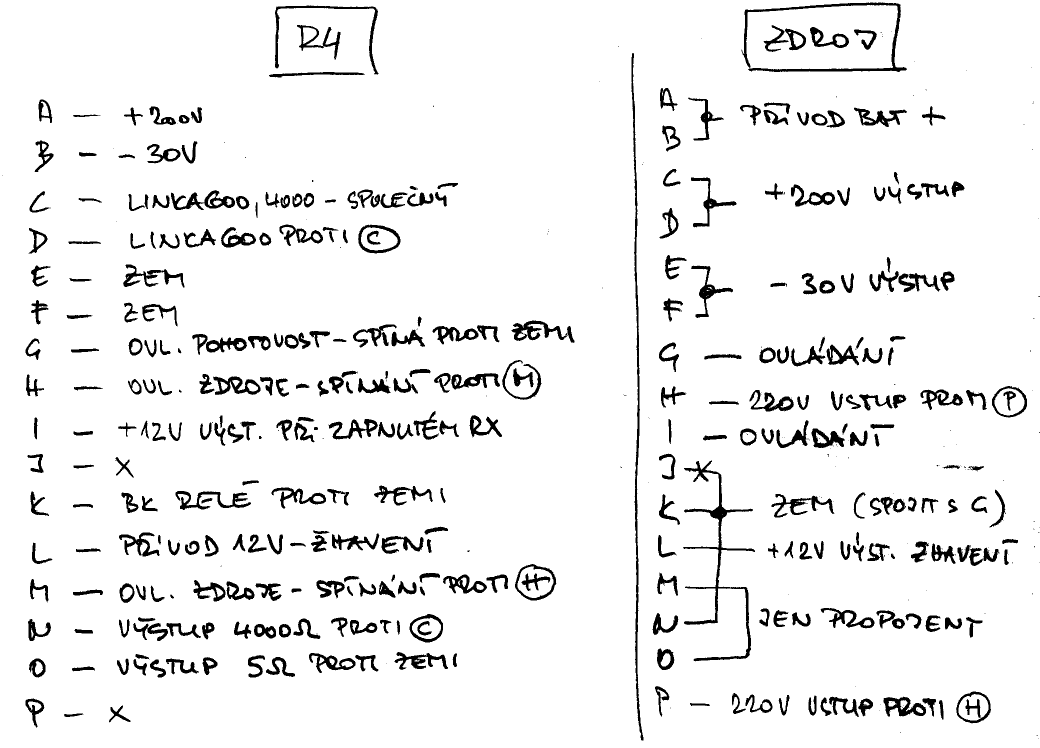 R4
A — +200V
B — -30V
C — LINKA 600, 4000 - SPOLEČNÝ
D — LINKA 600 PROTI Ⓒ
E — ZEM
F — ZEM
G — OVL. POHOTOVOST - SPÍNÁ PROTI ZEMI
H — OVL. ZDROJE - SPÍNÁNÍ PROTI Ⓜ
I — +12V VÝST. PŘI ZAPNUTÉM RX
J — X
K — BK RELÉ PROTI ZEMI
L — PŘÍVOD 12V - ŽHAVENÍ
M — OVL. ZDROJE - SPÍNÁNÍ PROTI Ⓗ
N — VÝSTUP 4000Ω PROTI Ⓒ
O — VÝSTUP 5Ω PROTI ZEMI
P — X
ZDROJ
A
B
PŘÍVOD BAT +
C
D
+200V VÝSTUP
E
F
- 30V VÝSTUP
G — OVLÁDÁNÍ
H — 220V VSTUP PROTI Ⓟ
I — OVLÁDÁNÍ
J X
K — ZEM (SPOJIT S G)
L — +12V VÝST. ŽHAVENÍ
M
N
O
JEN PROPOJENÍ
P — 220V VSTUP PROTI Ⓗ